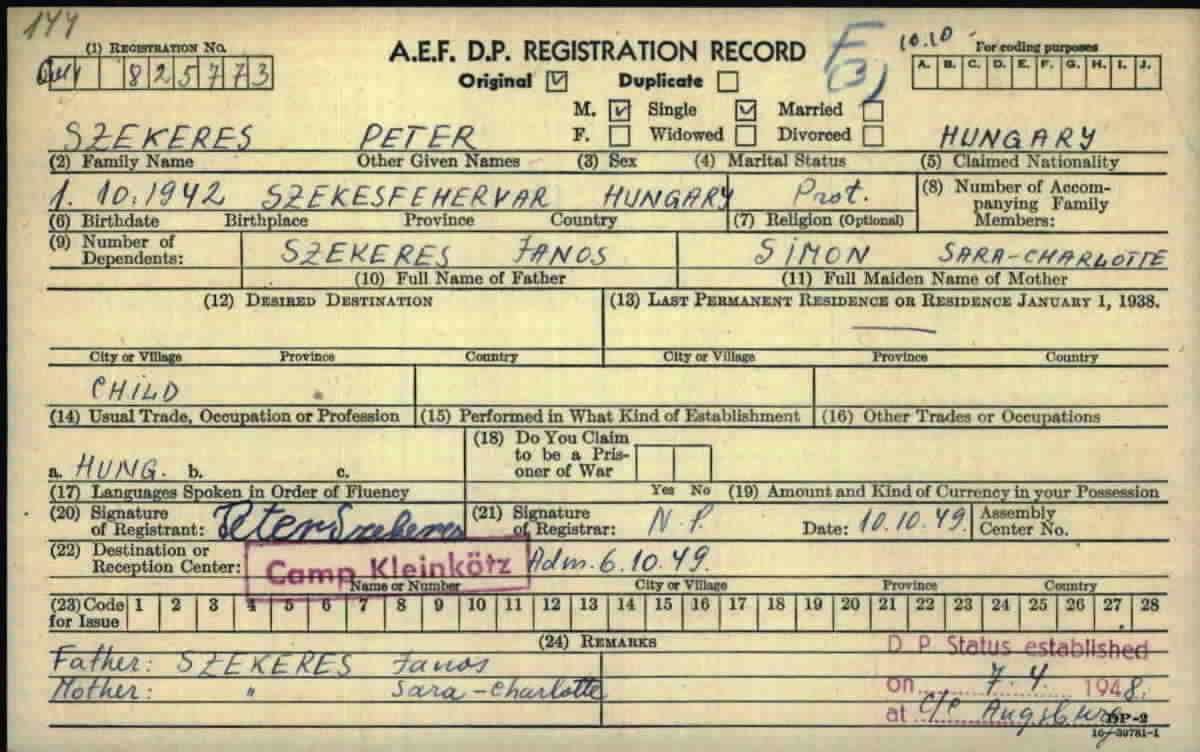 144
(1) REGISTRATION No.
8 2 5 7 7 3
A.E.F. D.P. REGISTRATION RECORD
Original ☑ Duplicate ☐
10.10 For coding purposes
A. B. C. D. E. F. G. H. I. J.
M. ☑ Single ☑ Married ☐
F. ☐ Widowed ☐ Divorced ☐
SZEKERES PETER HUNGARY
(2) Family Name Other Given Names (3) Sex (4) Marital Status (5) Claimed Nationality
1. 10. 1942 SZEKESFEHERVAR HUNGARY Prot. (8) Number of Accom-
panying Family
Members:
(6) Birthdate Birthplace Province Country (7) Religion (Optional)
(9) Number of
Dependents: SZEKERES JANOS SIMON SARA-CHARLOTTE
(10) Full Name of Father (11) Full Maiden Name of Mother
(12) DESIRED DESTINATION (13) LAST PERMANENT RESIDENCE OR RESIDENCE JANUARY 1, 1938.
City or Village Province Country City or Village Province Country
CHILD
(14) Usual Trade, Occupation or Profession (15) Performed in What Kind of Establishment (16) Other Trades or Occupations
(18) Do You Claim
to be a Pris-
oner of War
a. HUNG. b. c.
(17) Languages Spoken in Order of Fluency Yes No (19) Amount and Kind of Currency in your Possession
(20) Signature
of Registrant: Peter Szekeres (21) Signature
of Registrar: N.P. Date: 10.10.49. Assembly
Center No.
(22) Destination or
Reception Center: Camp Kleinkötz Adm. 6.10.49.
Name or Number City or Village Province Country
(23) Code
for Issue 1 2 3 4 5 6 7 8 9 10 11 12 13 14 15 16 17 18 19 20 21 22 23 24 25 26 27 28
(24) REMARKS
D P Status established
Father: SZEKERES Janos
on 7.4. 1948.
Mother: " Sara-Charlotte
at c/c Augsburg
DP-2
16-39781-1